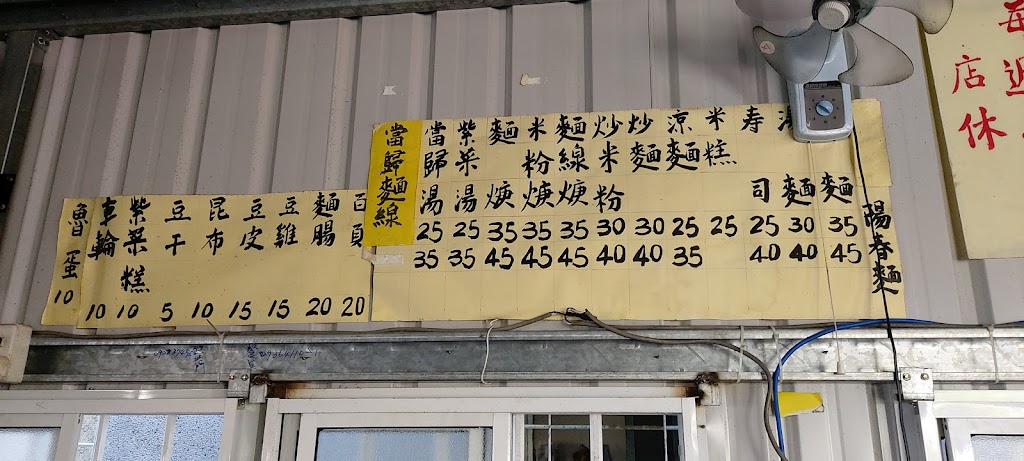 每週
店休
陽春麵
麵 35 45
麵 30 40
寿司 25 40
米糕 25
涼麵 25 35
炒麵 30 40
炒米粉 30 40
麵線焿 35 45
米粉焿 35 45
麵焿 35 45
紫菜湯 25 35
當歸湯 25 35
當歸麵線
百頁 20
麵腸 20
豆雞 15
豆皮 15
昆布 10
豆干 5
紫菜糕 10
車輪 10
魯蛋 10